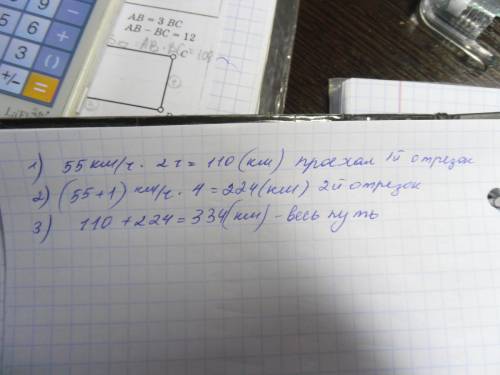 AB = 3 BC
AB − BC = 12
AB · BC = 108
C
6
−
5
3
()
+/−
=
1) 55 км/ч · 2 ч = 110 (км) проехал 1й отрезок
2) (55+1) км/ч · 4 = 224 (км) 2й отрезок
3) 110 + 224 = 334 (км) - весь путь